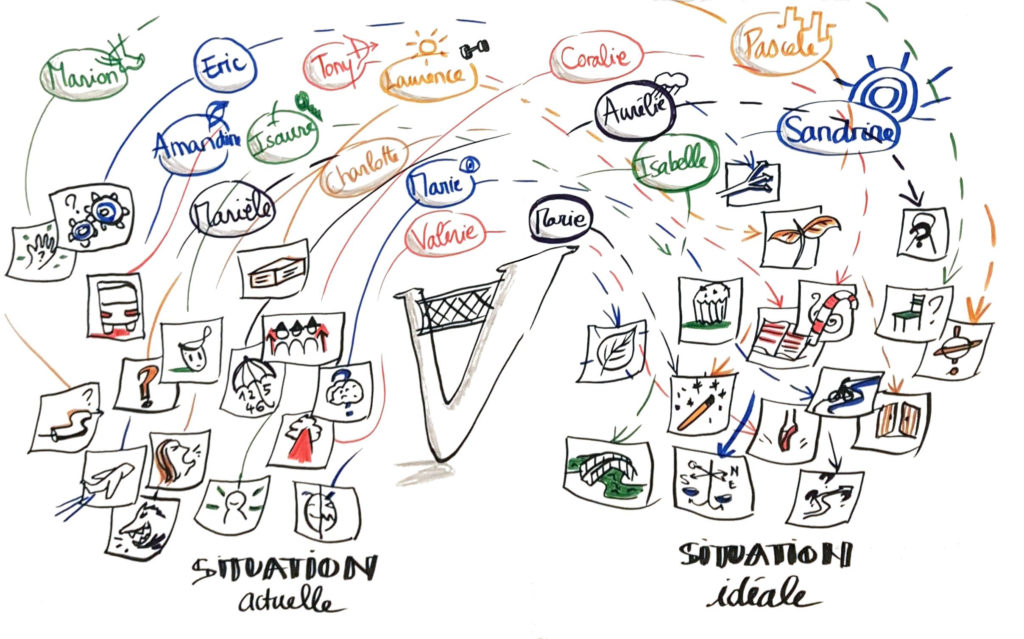 Marion
Eric
Tony
Laurence
Coralie
Pascale
Amandine
Isaure
Charlotte
Aurélie
Sandrine
Isabelle
Marièle
Marie
Valérie
Marie
?
?
?
?
?
?
?
?
1 2 5
4 6
N
S E
SITUATION
actuelle
SITUATION
idéale